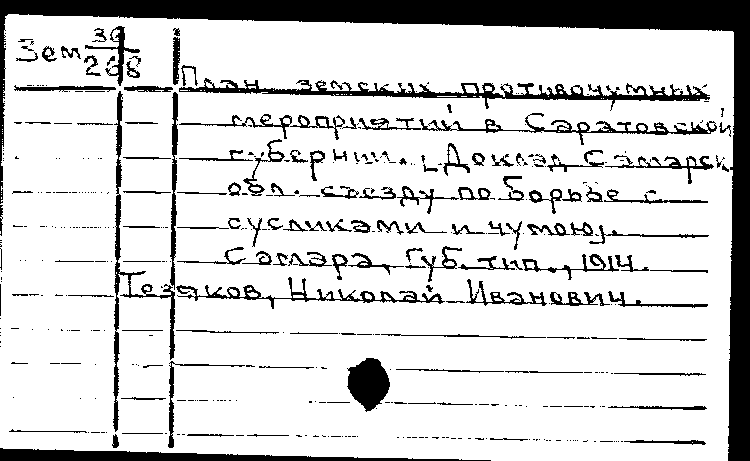 Зем 36/268
План земских противочумных
мероприятий в Саратовской
губернии. [Доклад Самарск.
обл. съезду по борьбе с
сусликами и чумою].
Самара, Губ. тип., 1914.
Тезяков, Николай Иванович.